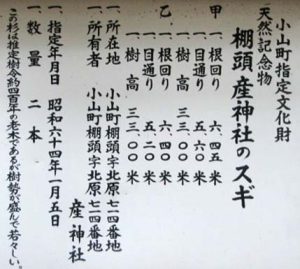 小山町指定文化財
天然記念物
棚頭産神社のスギ
甲 一、根回り 六、四五米
一、目通り 五、六〇米
一、樹高 三三、〇〇米
乙 一、根回り 六、四〇米
一、目通り 五、二〇米
一、樹高 三三、〇〇米
一、所在地 小山町棚頭字北原七二四番地
一、所有者 小山町棚頭字北原七二四番地
産神社
一、指定年月日 昭和六十四年一月五日
一、数量 二本
この杉は推定樹令約四百年の老木であるが樹勢が盛んで若々しい。